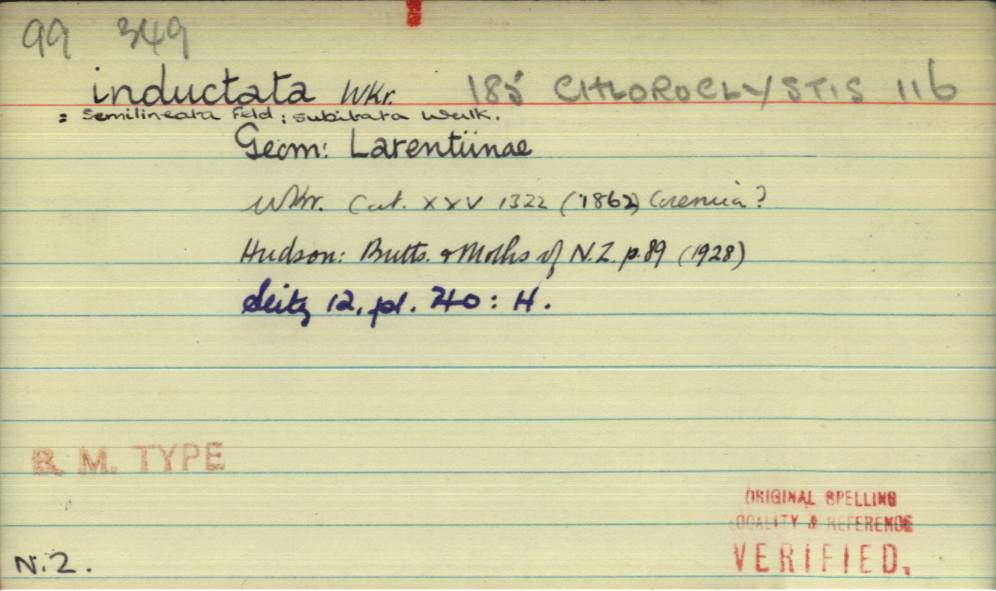 99 349
inductata Wkr. 185 CHLOROCLYSTIS 116
= Semilineata Feld; subitata Walk.
Geom: Larentiinae
Wkr. Cat. XXV 1322 (1862) Coremia?
Hudson: Butts. & Moths of N.Z. p.89 (1928)
Seitz 12. pl. 40: H.
B. M. TYPE
ORIGINAL SPELLING
LOCALITY & REFERENCE
VERIFIED.
N.Z.